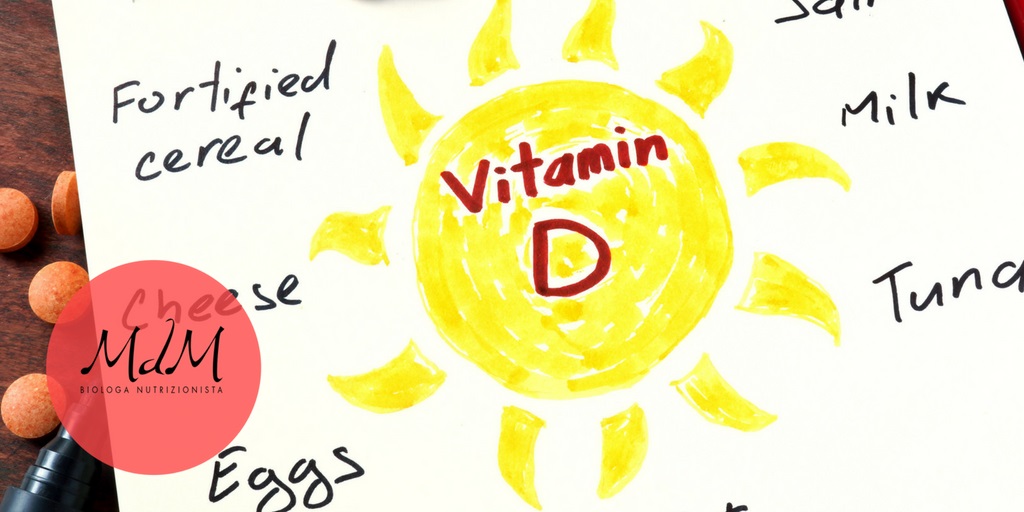 Fortified
cereal
Cheese
Eggs
Vitamin
D
Milk
Tuna
MdM
BIOLOGA NUTRIZIONISTA